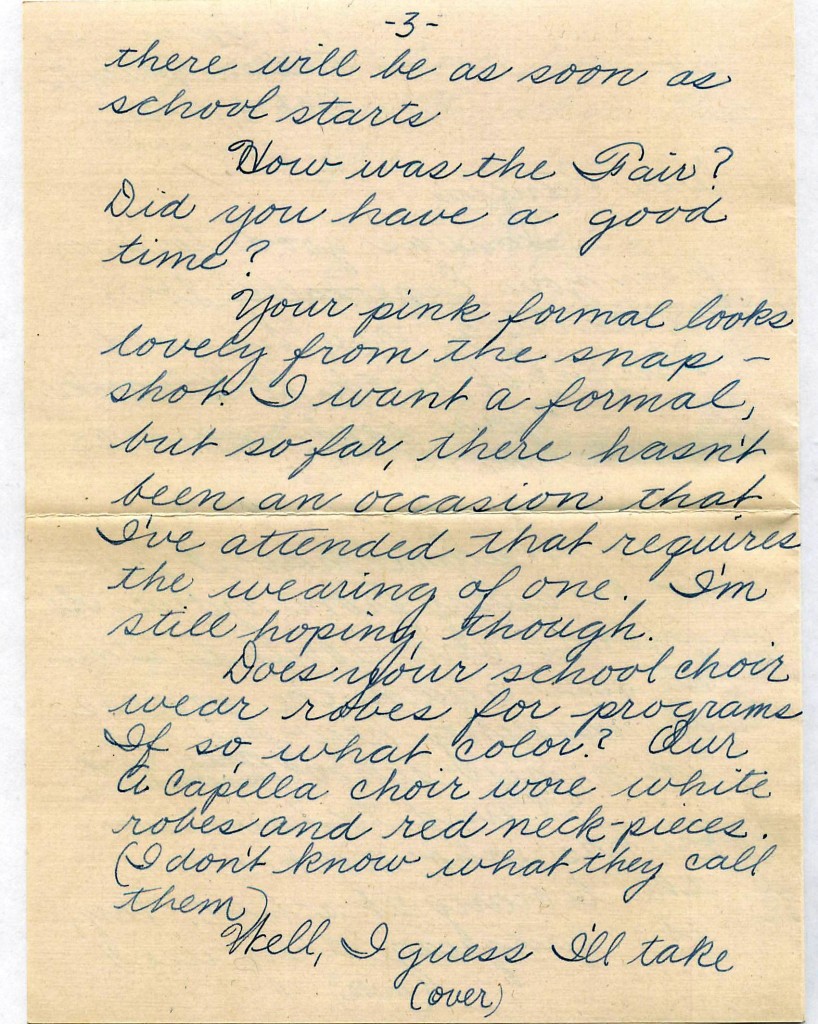 -3-
there will be as soon as
school starts
How was the Fair?
Did you have a good
time?
Your pink formal looks
lovely from the snap-
shot. I want a formal,
but so far, there hasn't
been an occasion that
I've attended that requires
the wearing of one. I'm
still hoping, though.
Does your school choir
wear robes for programs
If so, what color? Our
A Capella choir wore white
robes and red neck-pieces.
(I don't know what they call
them)
Well, I guess I'll take
(over)